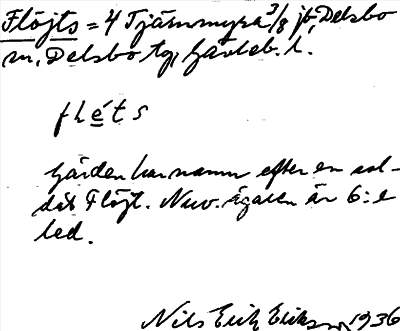 Flöjts = 4 Tjärnmyra 3/8 jb, Delsbo
sn, Delsbo tg, Gävleb. l.
flė́ts
Gården har namn efter en sol-
dat Flöjt. Nuv. ägaren är 6:e
led.
Nils Erik Eriksson 1936